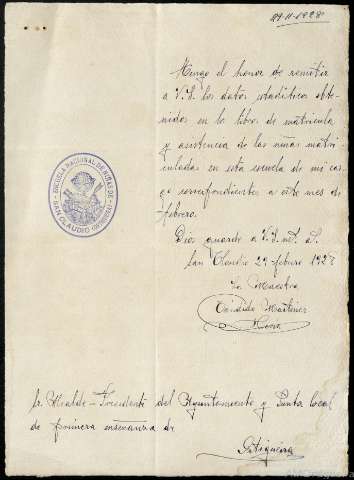 29-II-1928
Tengo el honor de remitir
a V.S. los datos estadísticos obte-
nidos en el libro de matrícula
y asistencia de las niñas matri-
culadas en esta escuela de mi car-
go correspondientes a este mes de
febrero.
Dios guarde a V.S. m. a.
San Claudio 29 febrero 1928
La Maestra
Martínez
ESCUELA NACIONAL DE NIÑAS DE
SAN CLAUDIO
Sr. Alcalde-Presidente del Ayuntamiento y Junta local
de primera enseñanza de
Ortigueira